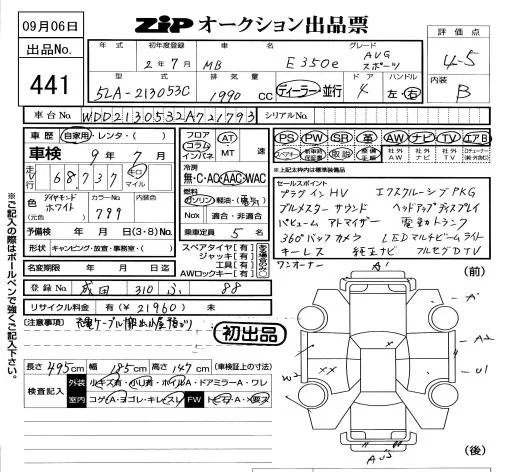 09月06日
ZIP オークション出品票
出品No.
441
年式 初年度登録 車名 グレード
2年7月 MB E350e AVG スポーツ
型式 排気量 ドア ハンドル
5LA-213053C 1990 CC ディーラー・並行 4 左・右
評価点
4-5
内装
B
車台No. WDD2130532A721793 シリアルNo.
車歴 自家用・レンタ・( )
車検 9年7月
走行 68,737 キロ マイル
色 ダイヤモンドホワイト (元色) カラーNo. 799
予備検 年 月 日 (3・8) No.
形状 キャンピング・放置・事務室・( )
名変期限 年 月 日迄
登録No. 成田 310 ふ 88
フロア コラム インパネ AT・MT 速
冷房
無・C・AC・AAC・WAC
燃料
ガソリン・軽油・(電気)
Nox 適合・非適合
乗車定員 5名
スペアタイヤ[有]
ジャッキ[有]
工具[有]
AWロックキー[有]
PS PW SR 革 AW ナビ TV エアB
スペアキー 新車時保証書 取説 整備手帳 社外AW 社外ナビ 社外TV
※上記は純正装備
セールスポイント
プラグインHV エクスクルーシブPKG
ブルメスターサウンド ヘッドアップディスプレイ
パヒュームアトマイザー 電動トランク
360°バックカメラ LEDマルチビームライト
キーレス 純正ナビ フルセグDTV
ワンオーナー
リサイクル料金 有(¥21960) 未
(注意事項) 充電ケーブル
初出品
長さ 495cm 幅 185cm 高さ 147cm (車検証上の寸法)
検査記入 外装 小キズ有・小U有・ホイルA・ドアミラーA・ワレ
室内 コゲ・ヨゴレ・キレ・スレ FW トビ石A・X・要ス
※ご記入の際はボールペンで強くご記入下さい。
(前)
A'
A'
A2
U1
W2
XX
(後)